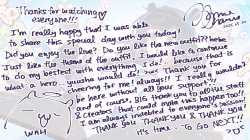 Thanks for watching
everyone!!!
I'm really happy that I was able
to share this special day with you today!
Did you enjoy the live? Do you like the new outfit?? hehe
Just like the theme of the outfit, I would like to continue
to do my best with everything I do! because that is
what a hero would do! Thank you for
cheering for me always!! I really wouldn't
be here without all your support!
and of course, BIG thank you to all the staff
& creators that could make this happen too!!
I am always indebted to everyone's help!
THANK YOU THANK YOU & THANK YOU!
it's time To Go NEXT!!
WAH